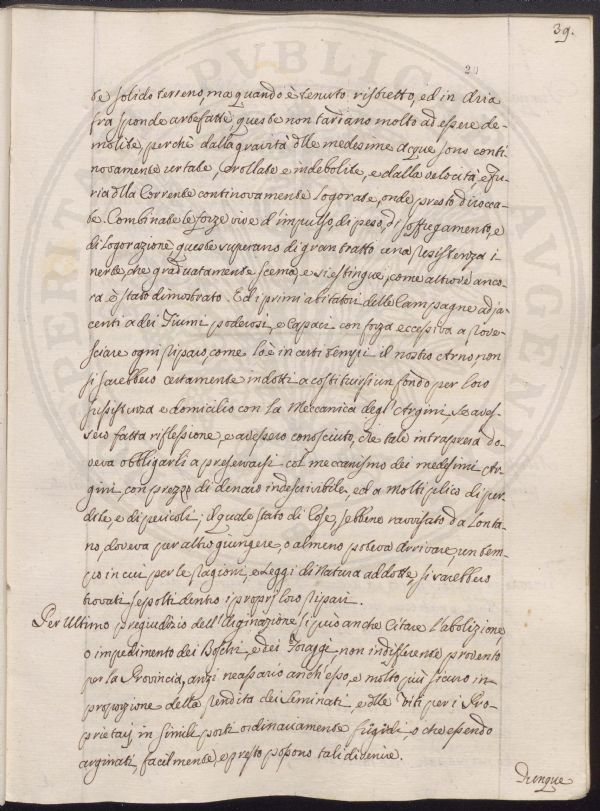 39.
20
te solido terreno, ma quando è tenuto ristretto, ed in aria
fra sponde artefatte queste non tardano molto ad essere de-
molite, perchè dalla gravità dlle medesime acque sono conti-
novamente urtate, crollate e indebolite, e dalla velocità, e fu-
ria dlla Corrente continovamente logorate, onde presto diroccа-
te. Combinate le forze vive d'impulso, di peso, di soffregamento, e
di logorazione queste superano di gran tratto una resistenza i-
nerte, che gradatamente scema, e si estingue, come altrove anco-
ra è stato dimostrato. Ed i primi abitatori delle Campagne adja-
centi a dei Fiumi poderosi, e capaci con forza eccessiva a rove-
sciare ogni riparo, come lo è in certi tempi il nostro Arno, non
si sarebbero certamente indotti a costituirsi un fondo per loro
sussistenza e domicilio con la Meccanica degl'Argini, se aves-
sero fatta riflessione, e avessero conosciuto, che tale intrapresa do-
veva obbligarli a preservarsi col meccanismo dei medesimi Ar-
gini, con prezzo di denaro indescrivibile, ed a moltiplico di per-
dite, e di pericoli; il quale stato di Cose, sebbene ravvisato da lonta-
no, doveva per altro giungere, o almeno poteva arrivare, un tem-
po in cui per le ragioni, e Leggi di Natura addotte, si sarebbero
trovati sepolti dentro i proprj loro ripari.
Per Ultimo pregiudizio dell'Arginazione si può anche Citare l'abolizione,
o impedimento dei Boschi, e dei Foraggi, non indifferente provento
per la Provincia, anzi necessario anch'esso, e molto più sicuro in
proporzione della rendita dei Seminati, e dlle Viti per i Pro-
prietarj in simili posti ordinariamente, o che essendo
arginati, facilmente, e presto possono tali divenire.
Dunque